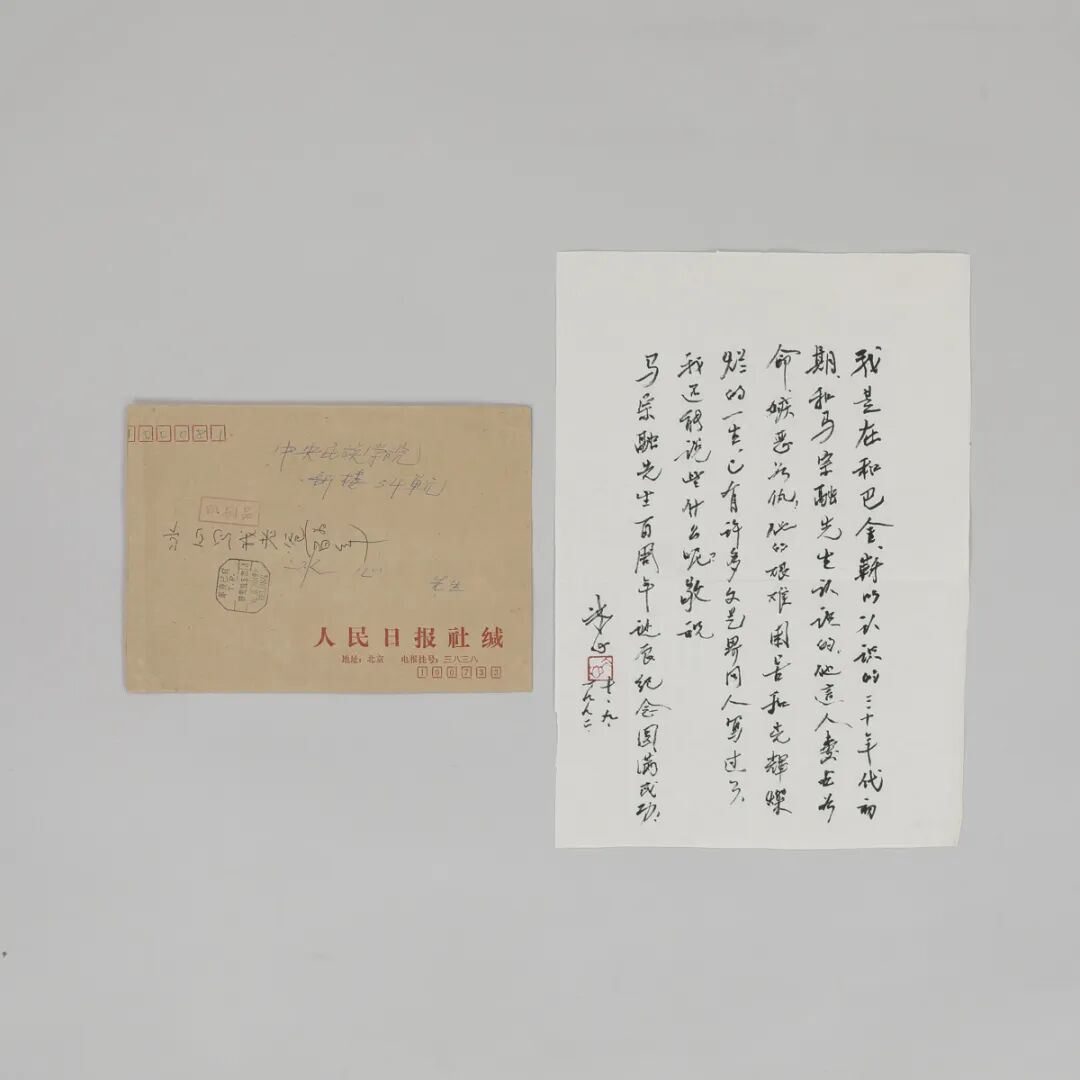 100081
中央民族学院
新楼24单元
冰心
先生
人民日报社缄
地址:北京 电报挂号:三八三八
100733
我是在和巴金、靳以认识的三十年代初
期,和马宗融先生认识的。他这人爱士如
命,嫉恶如仇,他的艰难困苦和光辉灿
烂的一生,已有许多文艺界同人写过了,
我还能说些什么呢?敬祝
马宗融先生百周年诞辰纪念圆满成功!
冰心
十、九、
一九九二